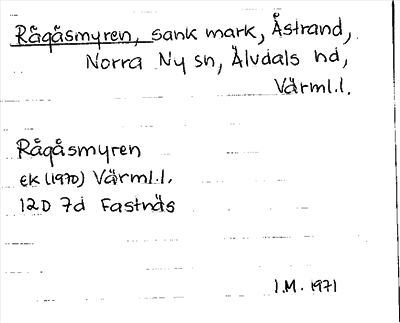 Rågåsmyren, sank mark, Åstrand,
Norra Ny sn, Älvdals hd,
Värml.l.
Rågåsmyren
ek (1970) Värml.l.
12D 7d Fastnäs
I.M. 1971